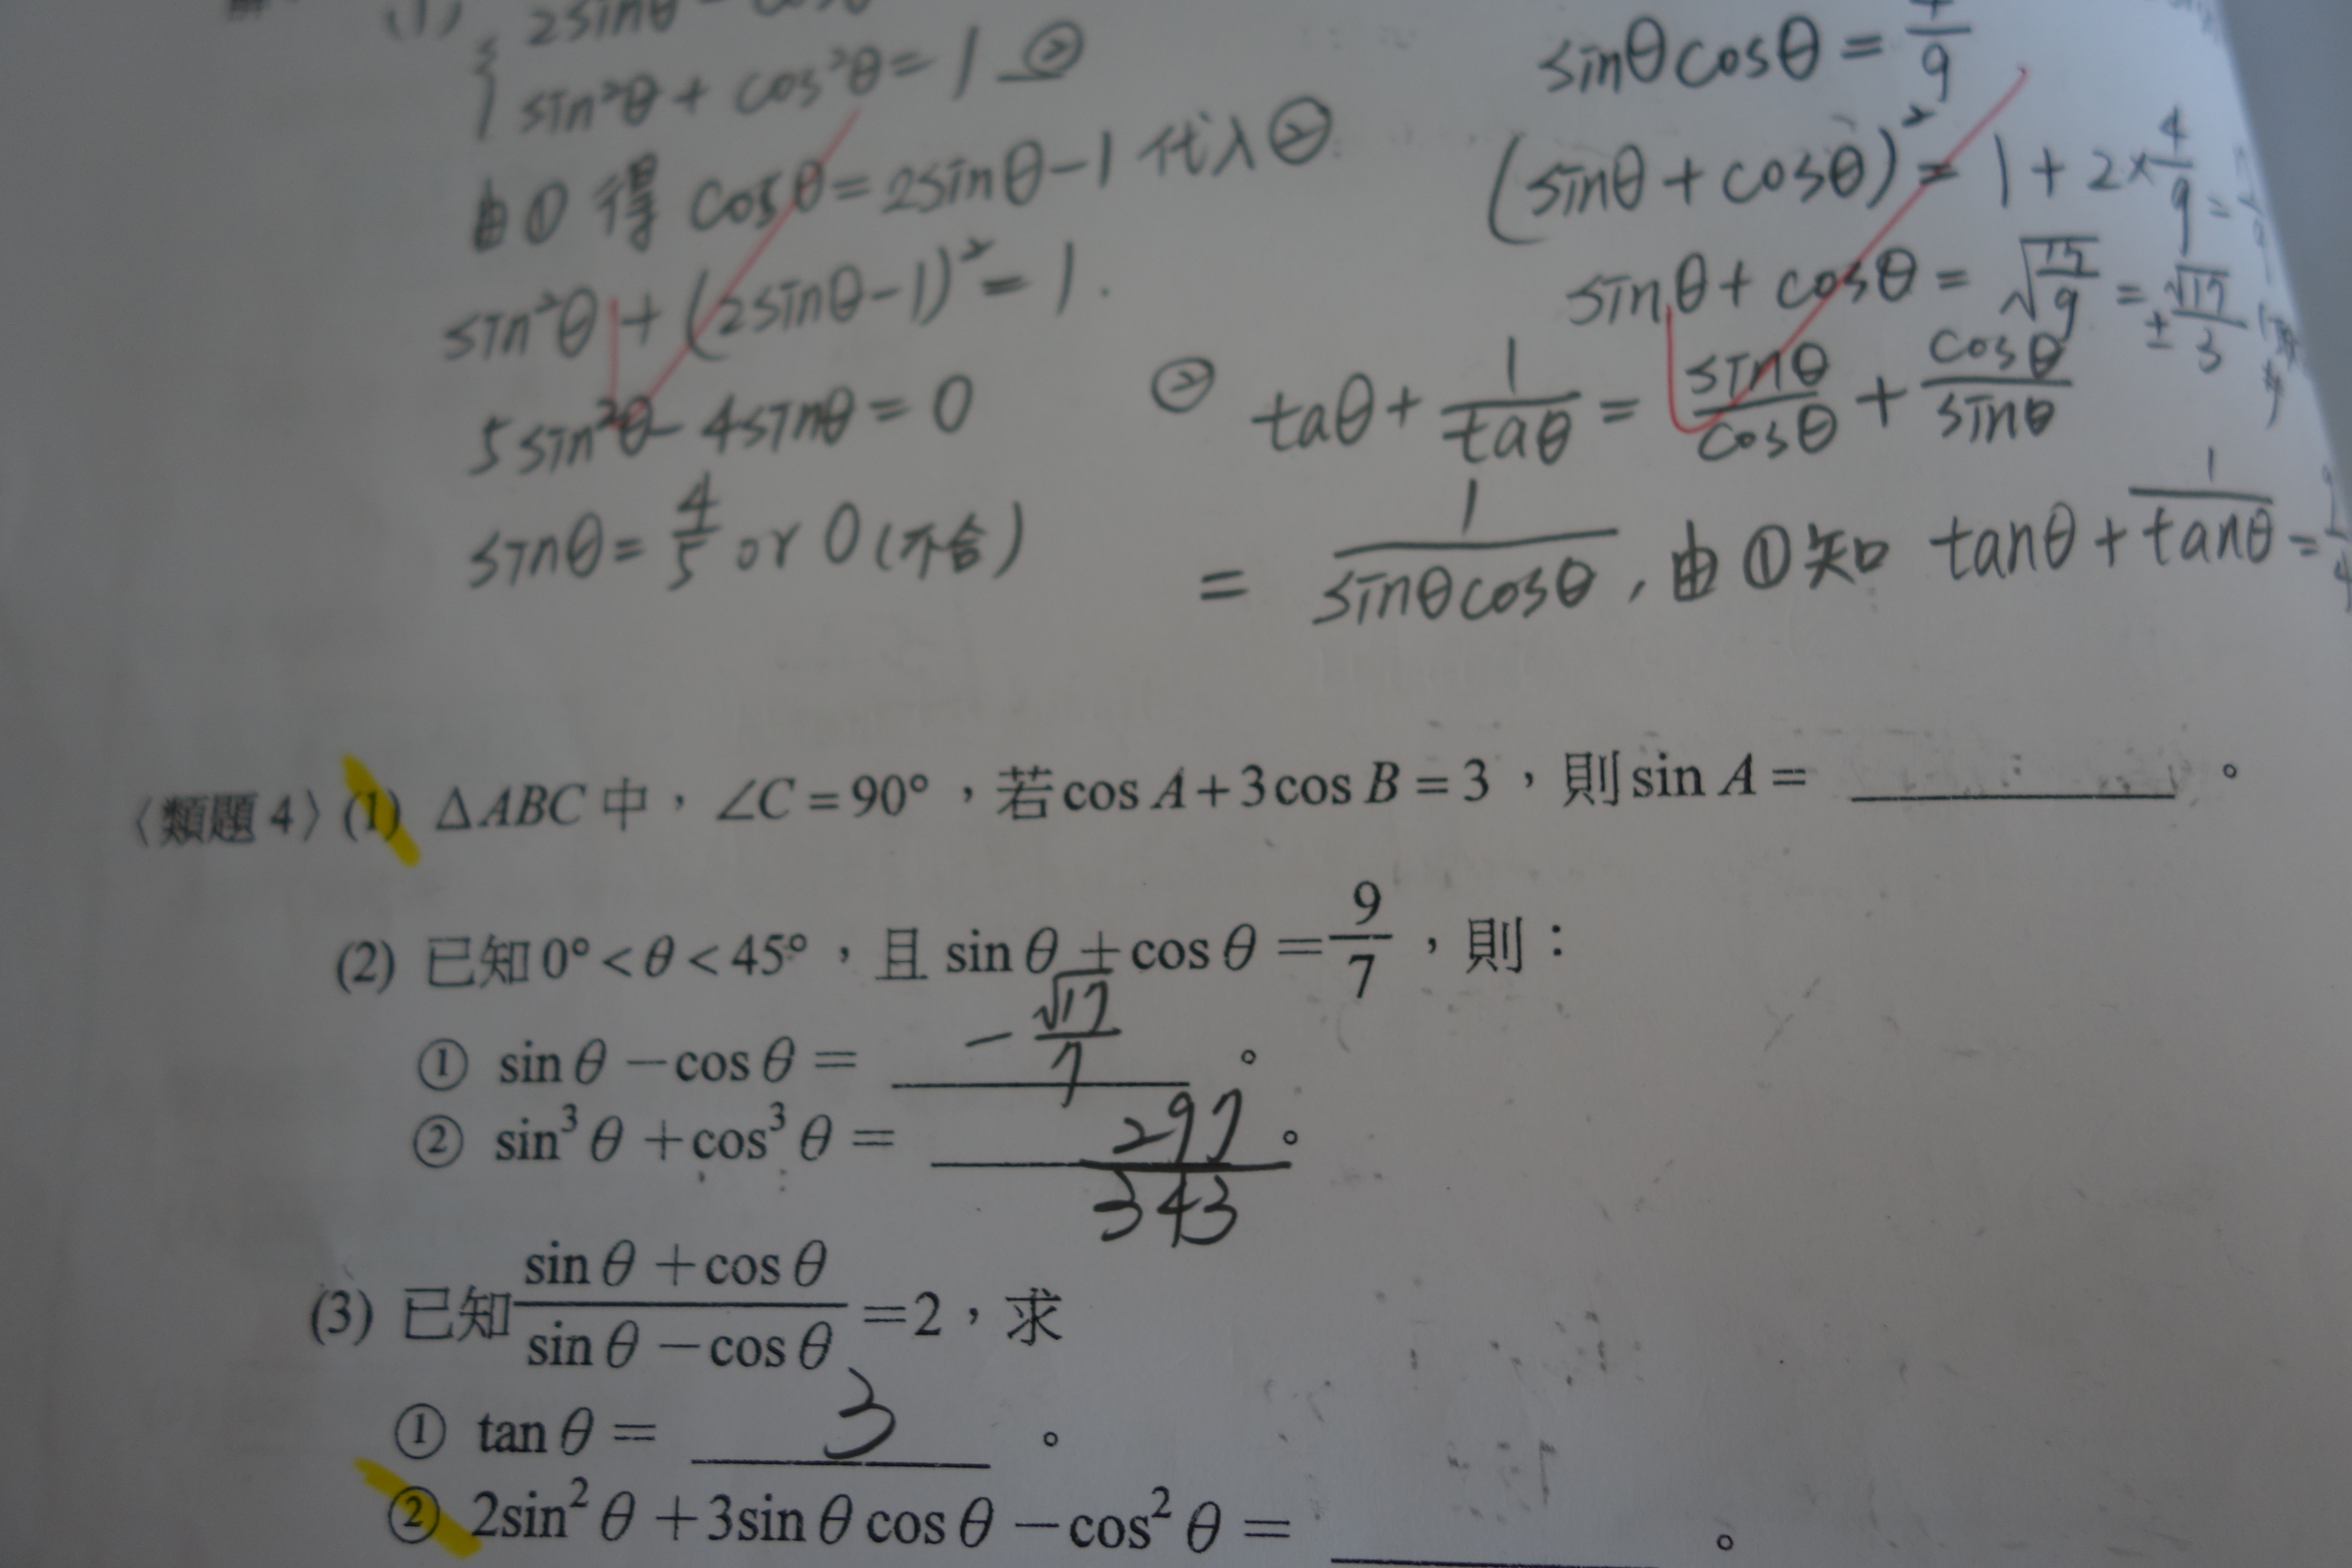 (1) 2sinθ - cosθ
sin²θ + cos²θ = 1 ②
由① 得 cosθ = 2sinθ-1 代入②
sin²θ + (2sinθ-1)² = 1.
5sin²θ - 4sinθ = 0
sinθ = 4/5 or 0 (不合)
sinθcosθ = 4/9
(sinθ + cosθ)² = 1 + 2×4/9 =
sinθ + cosθ = √(17/9) = ±√17/3
② taθ + 1/taθ = sinθ/cosθ + cosθ/sinθ
= 1/(sinθcosθ) , 由①知 tanθ + 1/tanθ = 9/4
〈類題4〉(1) ΔABC 中，∠C = 90°，若 cos A + 3 cos B = 3，則 sin A = ＿＿＿。
(2) 已知 0° < θ < 45°，且 sin θ + cos θ = 9/7，則：
① sin θ - cos θ = -√17/7。
② sin³ θ + cos³ θ = 297/343。
(3) 已知 (sin θ + cos θ)/(sin θ - cos θ) = 2，求
① tan θ = 3。
② 2sin² θ + 3sin θ cos θ - cos² θ = ＿＿＿。